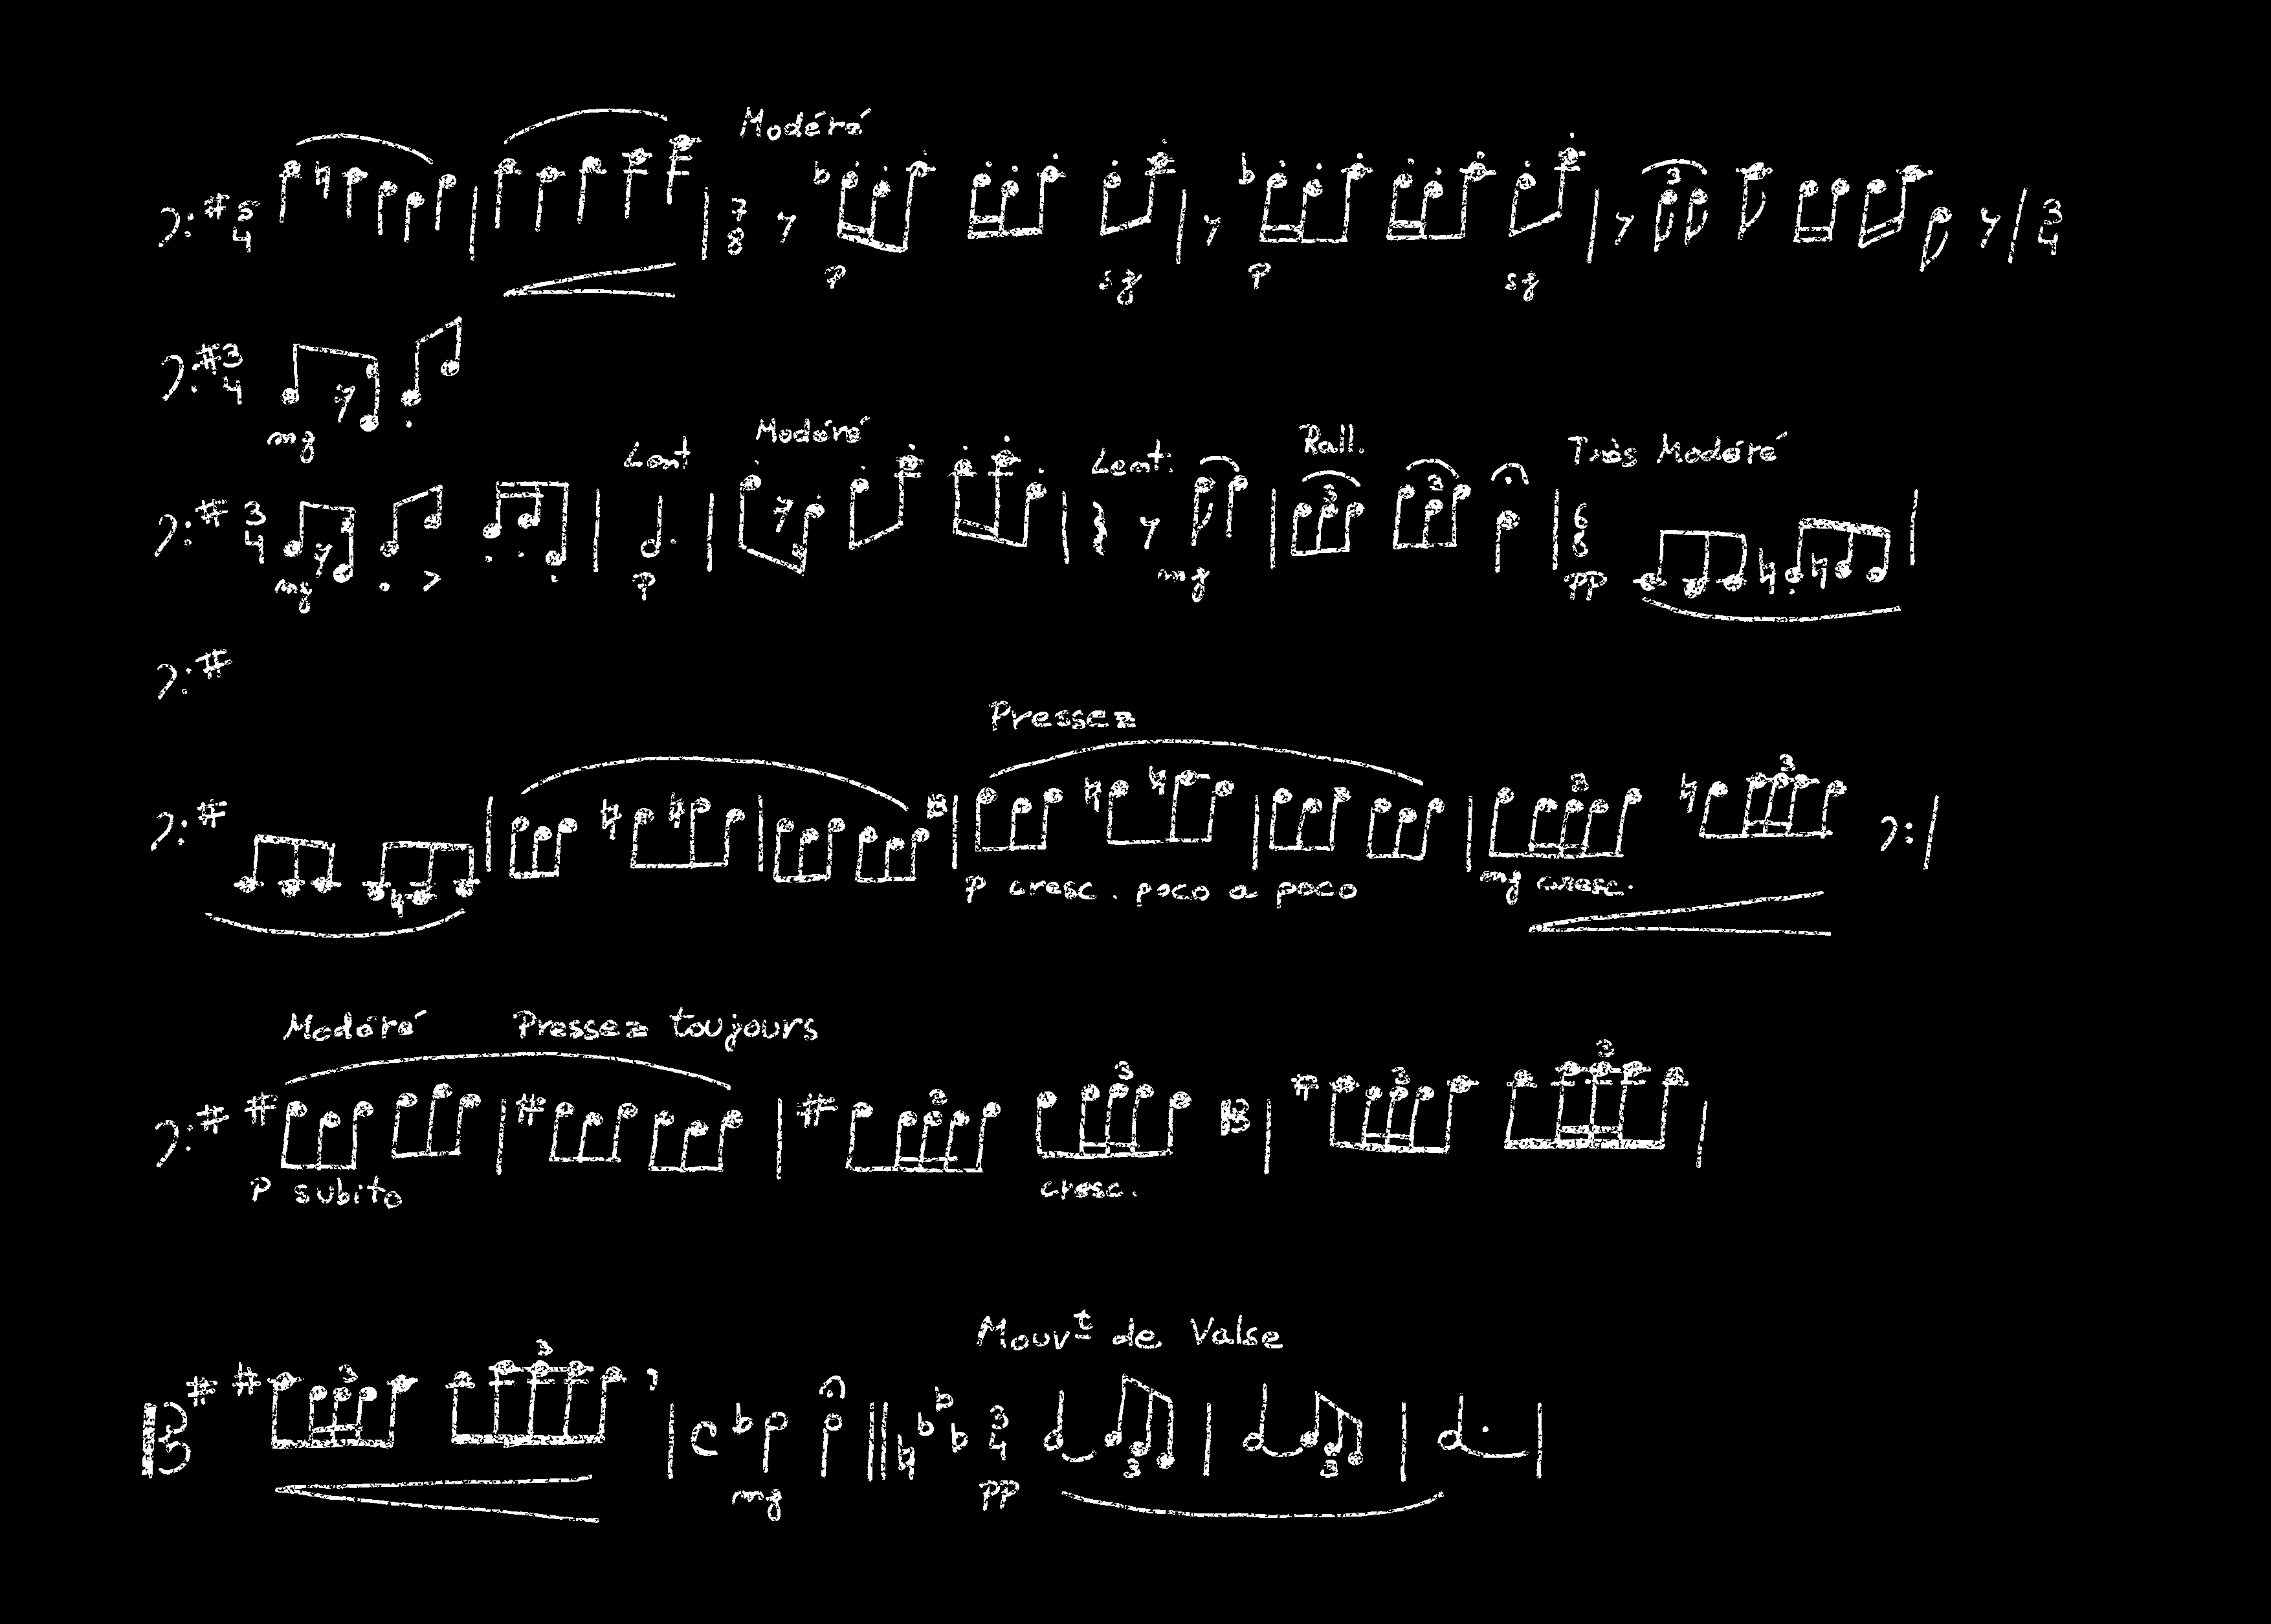 Modéré
5 4 7 8 3 4
p sf p sf 3
3 4
mf
Lent Modéré Lent. Rall. Très Modéré
3 4 3 3 6 8
mf p mf pp
Pressez
3 3
p cresc. poco a poco mf cresc.
Modéré Pressez toujours
3 3 3 3
p subito cresc.
Mouvt de Valse
3 3 C 3 4
mf pp 3 3